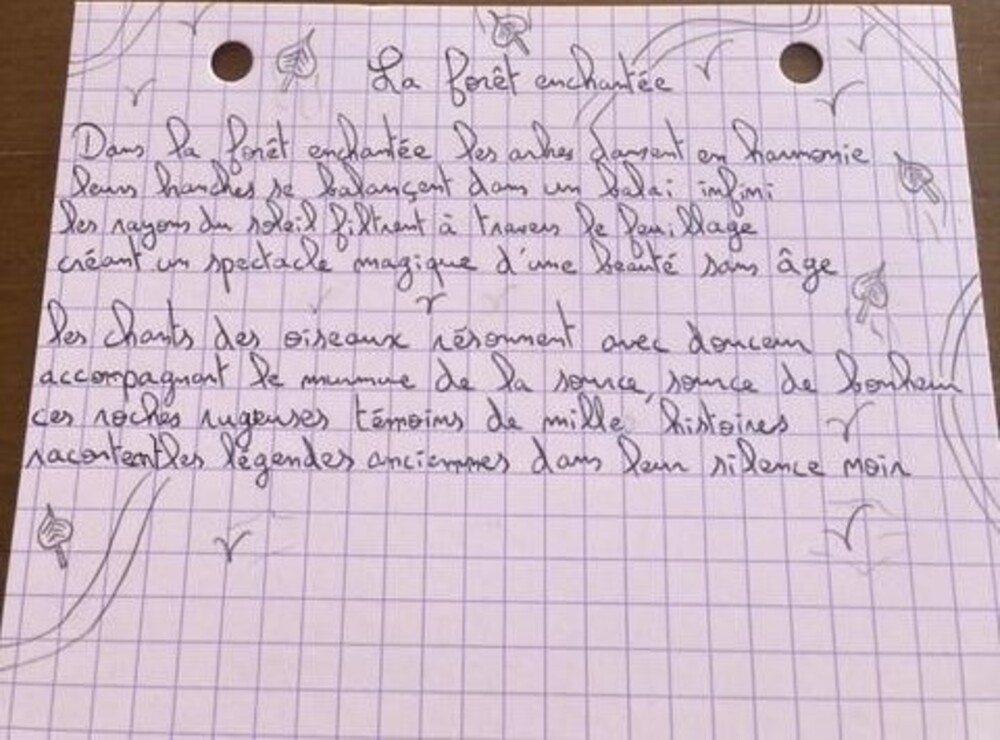 La forêt enchantée
Dans la forêt enchantée les arbres dansent en harmonie
leurs branches se balançent dans un balai infini
les rayons du soleil filtrent à travers le feuillage
créant un spectacle magique d'une beauté sans âge
les chants des oiseaux résonnent avec douceur
accompagnant le murmure de la source, source de bonheur
ces roches rugeuses témoins de mille histoires
racontent les légendes anciennes dans leur silence noir